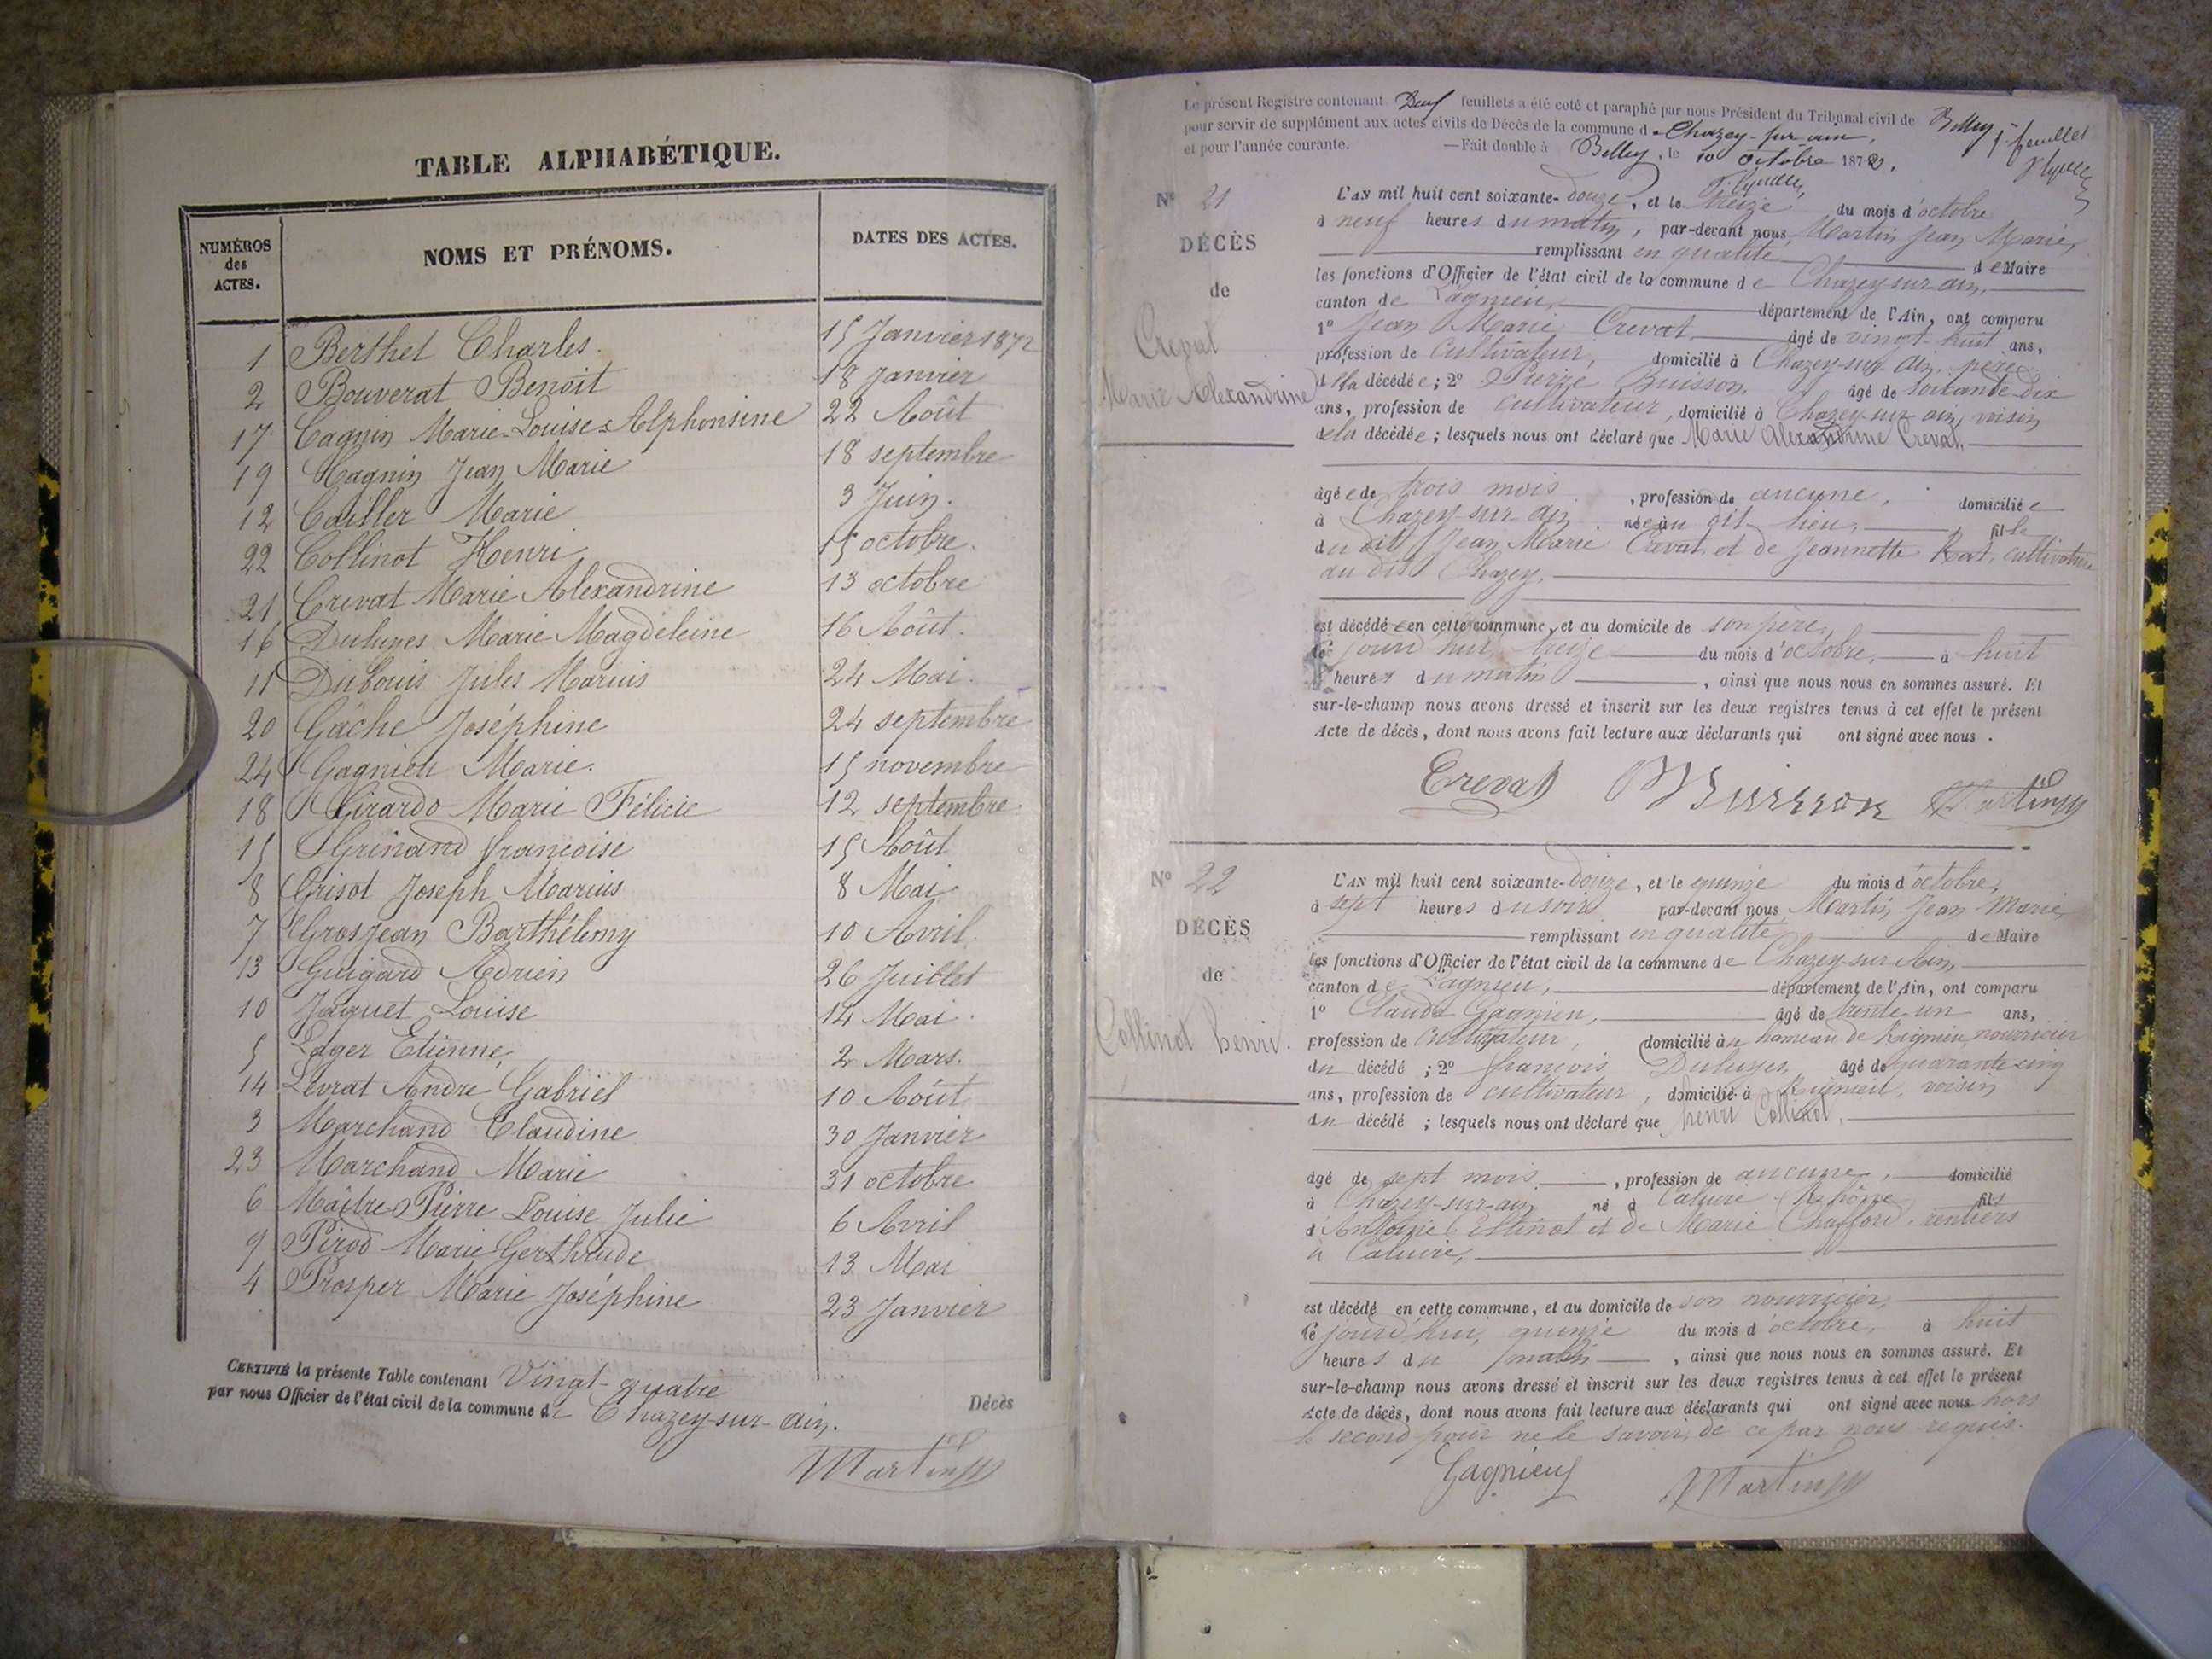 TABLE ALPHABÉTIQUE.
NUMÉROS des ACTES. NOMS ET PRÉNOMS. DATES DES ACTES.
1 Berthet Charles. 15 Janvier 1872
2 Bouverat Benoit 18 Janvier
17 Cagnin Marie-Louise-Alphonsine 22 Août
19 Cagnin Jean Marie 18 septembre
12 Cailler Marie 3 Juin.
22 Collinot Henri 15 octobre.
21 Crevat Marie Alexandrine 13 octobre
16 Duluyes Marie Magdeleine 16 Août.
11 Dubouis Jules Marius 24 Mai.
20 Gâche Joséphine 24 septembre
24 Gagnieu Marie. 15 novembre
18 Girardo Marie Félicie 12 septembre
15 Grinand françoise 15 Août
8 Grisot Joseph Marius 8 Mai
7 Grosjean Barthélemy 10 Avril
13 Guigard Adrien 26 Juillet
10 Jaquet Louise 14 Mai.
5 Lager Etienne, 2 Mars.
14 Levrat André Gabriel 10 Août
3 Marchand Claudine 30 Janvier
23 Marchand Marie 31 octobre
6 Maître-Pierre Louise Julie 6 Avril
9 Pirod Marie Gerthrude 13 Mai
4 Prosper Marie Joséphine 23 Janvier
CERTIFIÉ la présente Table contenant Vingt-quatre Décès
par nous Officier de l'état civil de la commune de Chazey-sur-ain.
Martin
Le présent Registre contenant Deux feuillets a été coté et paraphé par nous Président du Tribunal civil de Belley
pour servir de supplément aux actes civils de Décès de la commune de Chazey-sur-ain,
et pour l'année courante. —Fait double à Belley, le 10 octobre 1872.
1er feuillet
N° 21
DÉCÈS
de
Crevat
Marie Alexandrine
L'AN mil huit cent soixante-douze, et le treize du mois d'octobre
à neuf heures du matin, par-devant nous Martin Jean Marie,
remplissant en qualité de Maire
les fonctions d'Officier de l'état civil de la commune de Chazey-sur-ain,
canton de Lagnieu, département de l'Ain, ont comparu
1° Jean Marie Crevat âgé de vingt-huit ans,
profession de cultivateur, domicilié à Chazey-sur-ain, père
de la décédée; 2° Pierre Buisson, âgé de soixante dix
ans, profession de cultivateur, domicilié à Chazey-sur-ain, voisin
de la décédée; lesquels nous ont déclaré que Marie Alexandrine Crevat,
âgée de trois mois, profession de aucune, domiciliée
à Chazey-sur-ain, née au dit lieu, fille
du dit Jean Marie Crevat et de Jeannette Rat, cultivateurs
au dit Chazey,
est décédée en cette commune, et au domicile de son père,
ce jourd'hui treize du mois d'octobre, à huit
heures du matin, ainsi que nous nous en sommes assuré. Et
sur-le-champ nous avons dressé et inscrit sur les deux registres tenus à cet effet le présent
Acte de décès, dont nous avons fait lecture aux déclarants qui ont signé avec nous.
Crevat Buisson Martin
N° 22
DÉCÈS
de
Collinot henri.
L'AN mil huit cent soixante-douze, et le quinze du mois d'octobre,
à sept heures du soir par-devant nous Martin Jean Marie
remplissant en qualité de Maire
les fonctions d'Officier de l'état civil de la commune de Chazey-sur-Ain,
canton de Lagnieu, département de l'Ain, ont comparu
1° Claude Gagnieu, âgé de trente un ans,
profession de cultivateur, domicilié au hameau de Rignieu, nourricier
du décédé; 2° françois Duluyes, âgé de quarante cinq
ans, profession de cultivateur, domicilié à Rignieu, voisin
du décédé; lesquels nous ont déclaré que henri Collinot,
âgé de sept mois, profession de aucune, domicilié
à Chazey-sur-ain né à Caluire (Rhône) fils
d'Antoine Collinot et de Marie Chafford, rentiers
à Caluire,
est décédé en cette commune, et au domicile de son nourricier,
ce jourd'hui quinze du mois d'octobre, à huit
heures du matin, ainsi que nous nous en sommes assuré. Et
sur-le-champ nous avons dressé et inscrit sur les deux registres tenus à cet effet le présent
Acte de décès, dont nous avons fait lecture aux déclarants qui ont signé avec nous hors
le second pour ne le savoir, de ce par nous requis.
Gagnieu Martin